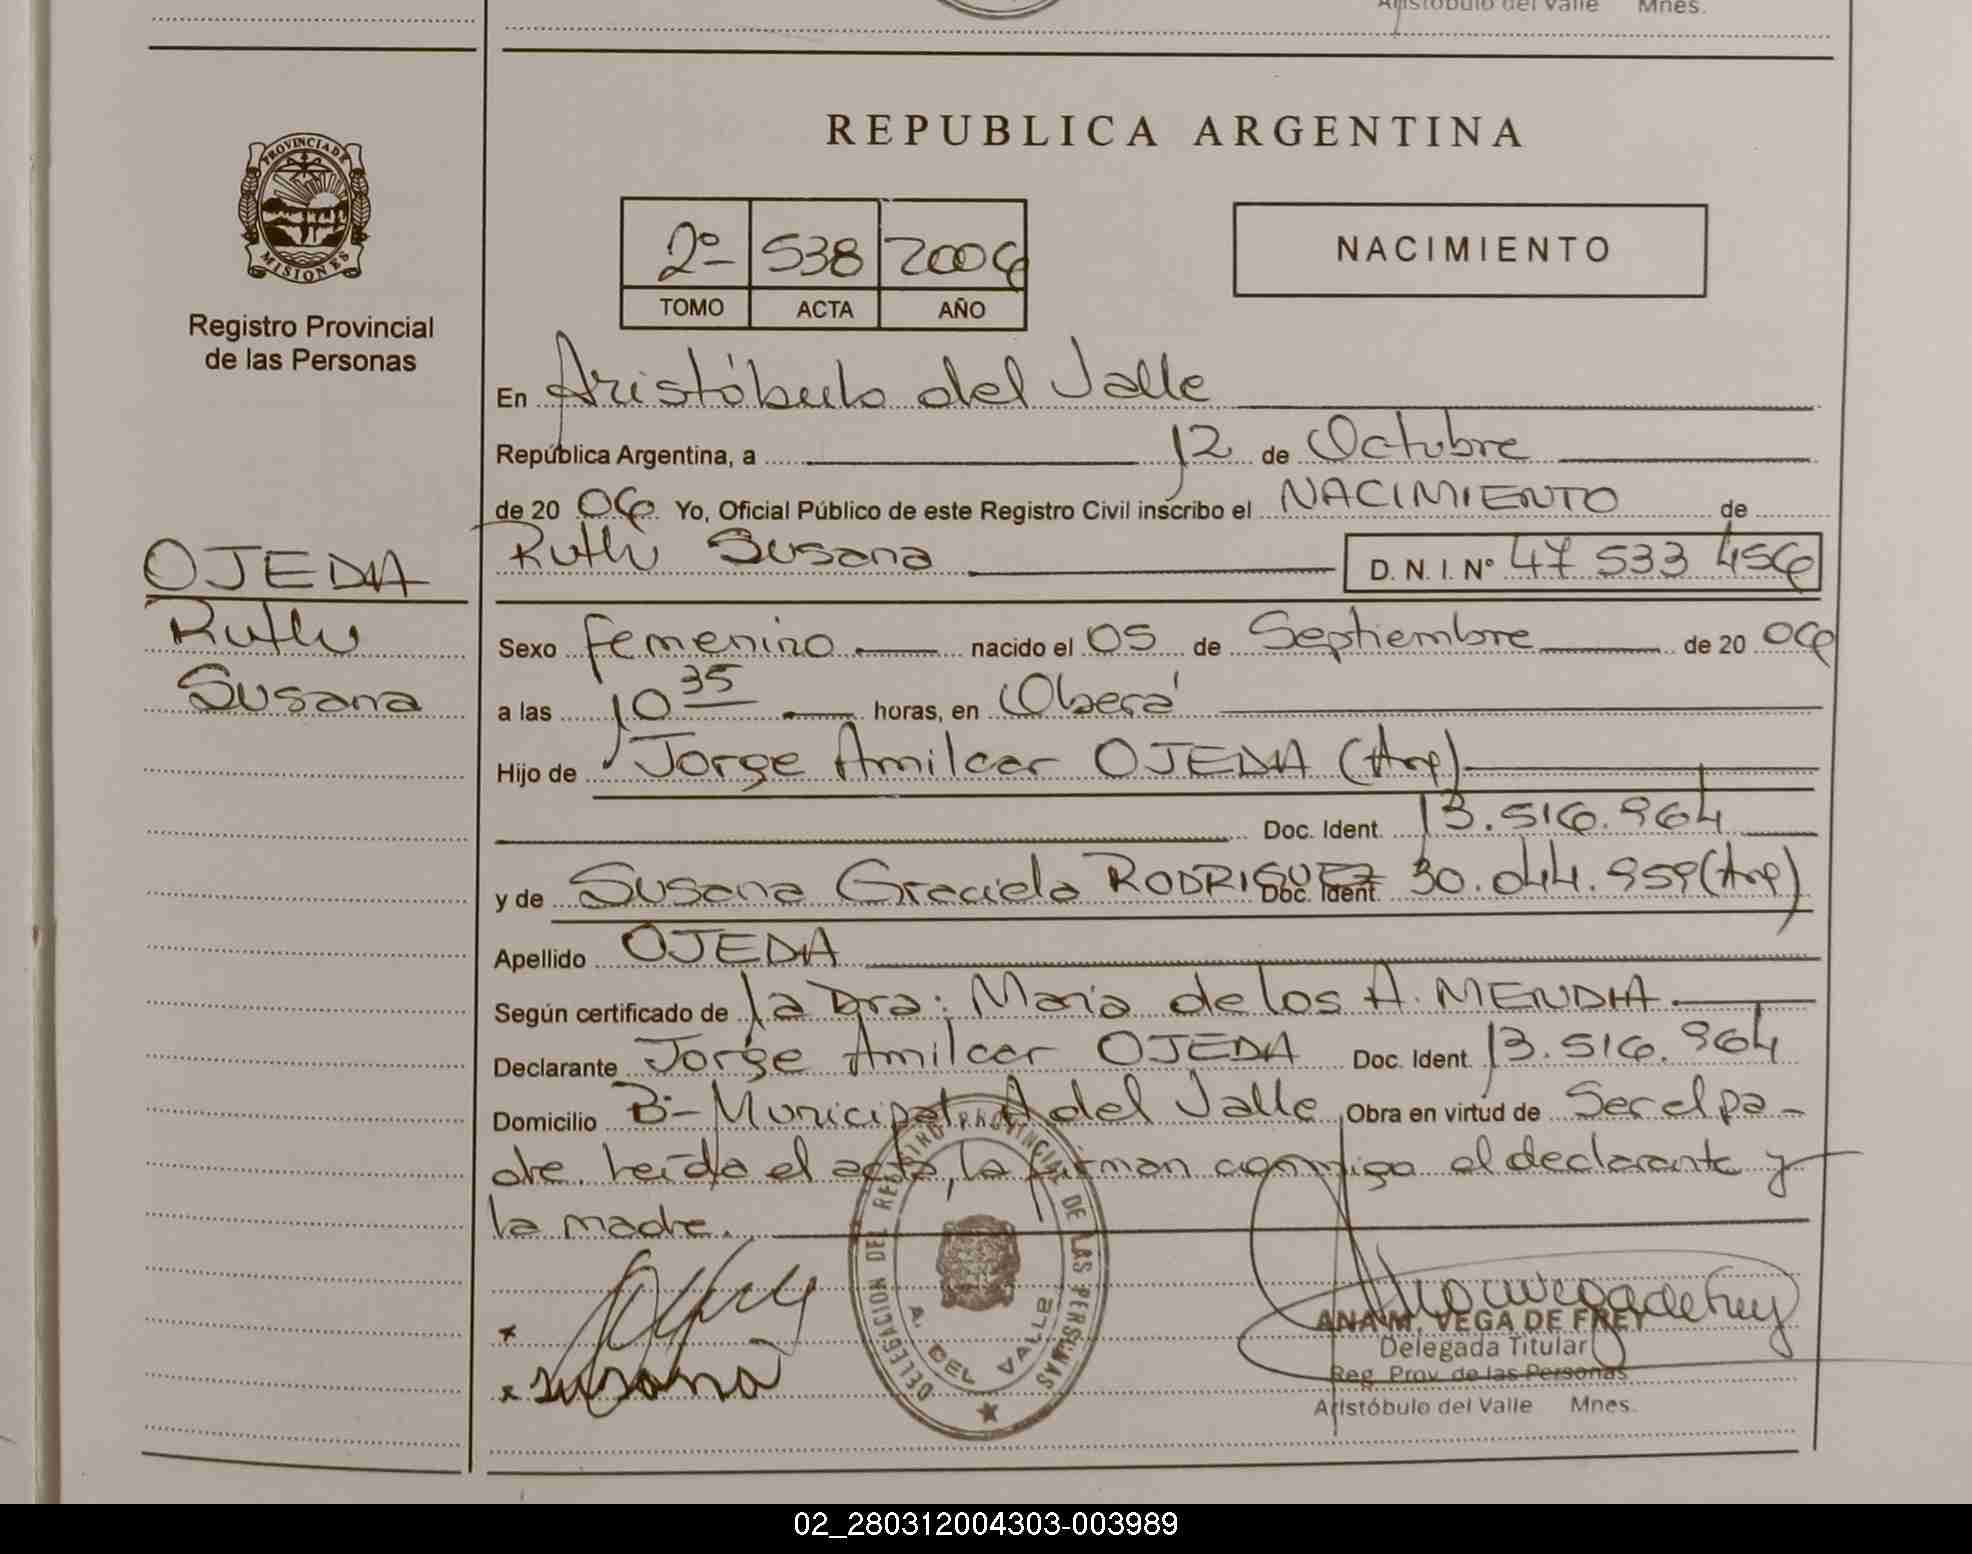 Aristóbulo del Valle Mnes.
PROVINCIA DE
MISIONES
Registro Provincial
de las Personas
OJEDA
Ruth
Susana
REPUBLICA ARGENTINA
2º 538 2006
TOMO ACTA AÑO
NACIMIENTO
En Aristóbulo del Valle
República Argentina, a 12 de Octubre
de 20 06 Yo, Oficial Público de este Registro Civil inscribo el NACIMIENTO de
Ruth Susana D. N. I. Nº 47 533 456
Sexo femenino nacido el 05 de Septiembre de 20 06
a las 10 35 horas, en Oberá
Hijo de Jorge Amilcar OJEDA (Arg)
Doc. Ident. 13.516.964
y de Susana Graciela RODRIGUEZ Doc. Ident. 30.044.959 (Arg)
Apellido OJEDA
Según certificado de la Dra: Maria de los A. MENDHA
Declarante Jorge Amilcar OJEDA Doc. Ident. 13.516.964
Domicilio Bº Municipal A del Valle Obra en virtud de Ser el pa-
dre. Leída el acta, la firman conmigo el declarante y
la madre.
x
x susana
DELEGACION DEL REGISTRO PROVINCIAL DE LAS PERSONAS
A. DEL VALLE
ANA M. VEGA DE FREY
Delegada Titular
Reg. Prov. de las Personas
Aristóbulo del Valle Mnes.
02_280312004303-003989